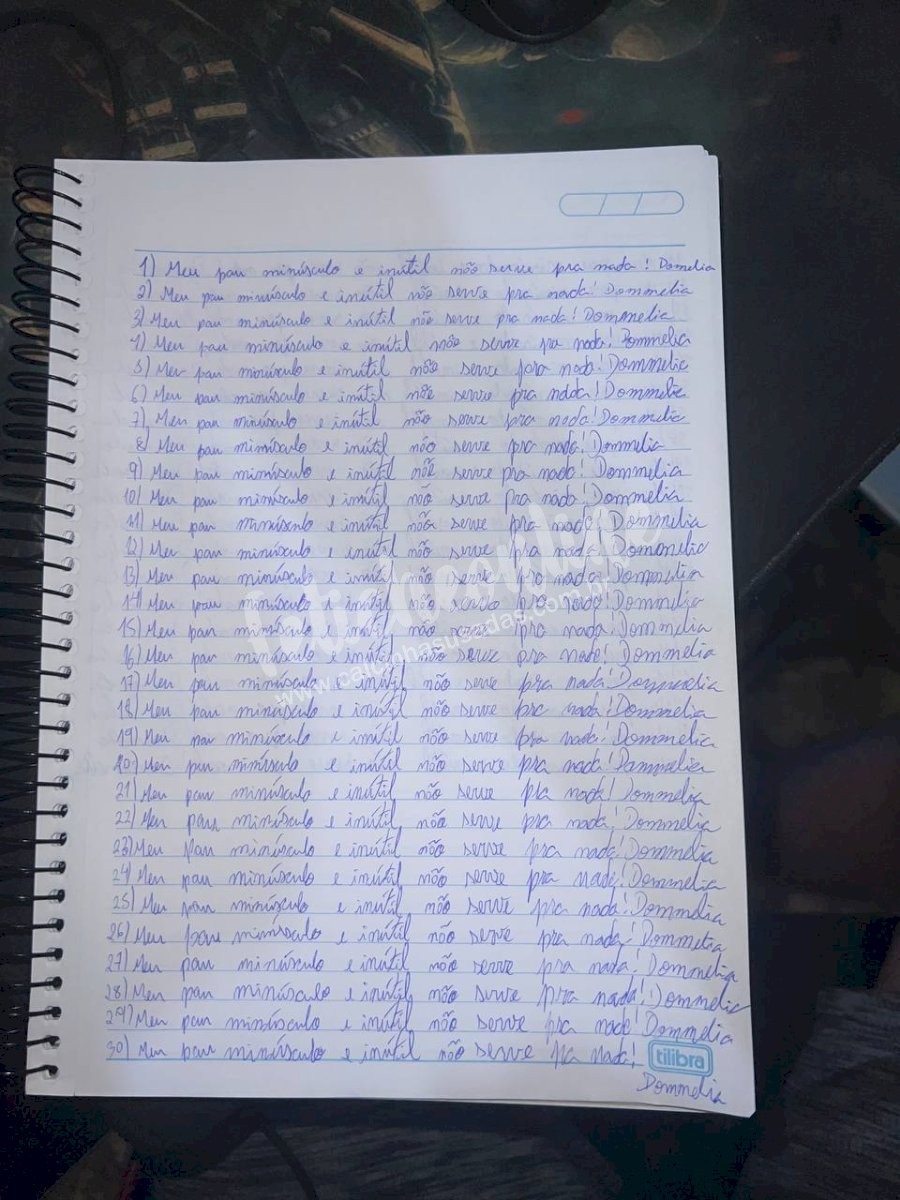 1) Meu pau minúsculo e inútil não serve pra nada! Domelia
2) Meu pau minúsculo e inútil não serve pra nada! Dommelia
3) Meu pau minúsculo e inútil não serve pra nada! Dommelia
4) Meu pau minúsculo e inútil não serve pra nada! Dommelia
5) Meu pau minúsculo e inútil não serve para nada! Dommelia
6) Meu pau minúsculo e inútil não serve pra nada! Dommelia
7) Meu pau minúsculo e inútil não serve pra nada! Dommelia
8) Meu pau minúsculo e inútil não serve pra nada! Dommelia
9) Meu pau minúsculo e inútil não serve pra nada! Dommelia
10) Meu pau minúsculo e inútil não serve pra nada! Dommelia
11) Meu pau minúsculo e inútil não serve pra nada! Dommelia
12) Meu pau minúsculo e inútil não serve pra nada! Dommelia
13) Meu pau minúsculo e inútil não serve pra nada! Dommelia
14) Meu pau minúsculo e inútil não serve pra nada! Dommelia
15) Meu pau minúsculo e inútil não serve pra nada! Dommelia
16) Meu pau minúsculo e inútil não serve pra nada! Dommelia
17) Meu pau minúsculo e inútil não serve pra nada! Dommelia
18) Meu pau minúsculo e inútil não serve pra nada! Dommelia
19) Meu pau minúsculo e inútil não serve pra nada! Dommelia
20) Meu pau minúsculo e inútil não serve pra nada! Dommelia
21) Meu pau minúsculo e inútil não serve pra nada! Dommelia
22) Meu pau minúsculo e inútil não serve pra nada! Dommelia
23) Meu pau minúsculo e inútil não serve pra nada! Dommelia
24) Meu pau minúsculo e inútil não serve pra nada! Dommelia
25) Meu pau minúsculo e inútil não serve pra nada! Dommelia
26) Meu pau minúsculo e inútil não serve pra nada! Dommelia
27) Meu pau minúsculo e inútil não serve pra nada! Dommelia
28) Meu pau minúsculo e inútil não serve pra nada! Dommelia
29) Meu pau minúsculo e inútil não serve pra nada! Dommelia
30) Meu pau minúsculo e inútil não serve pra nada!
tilibra
Dommelia